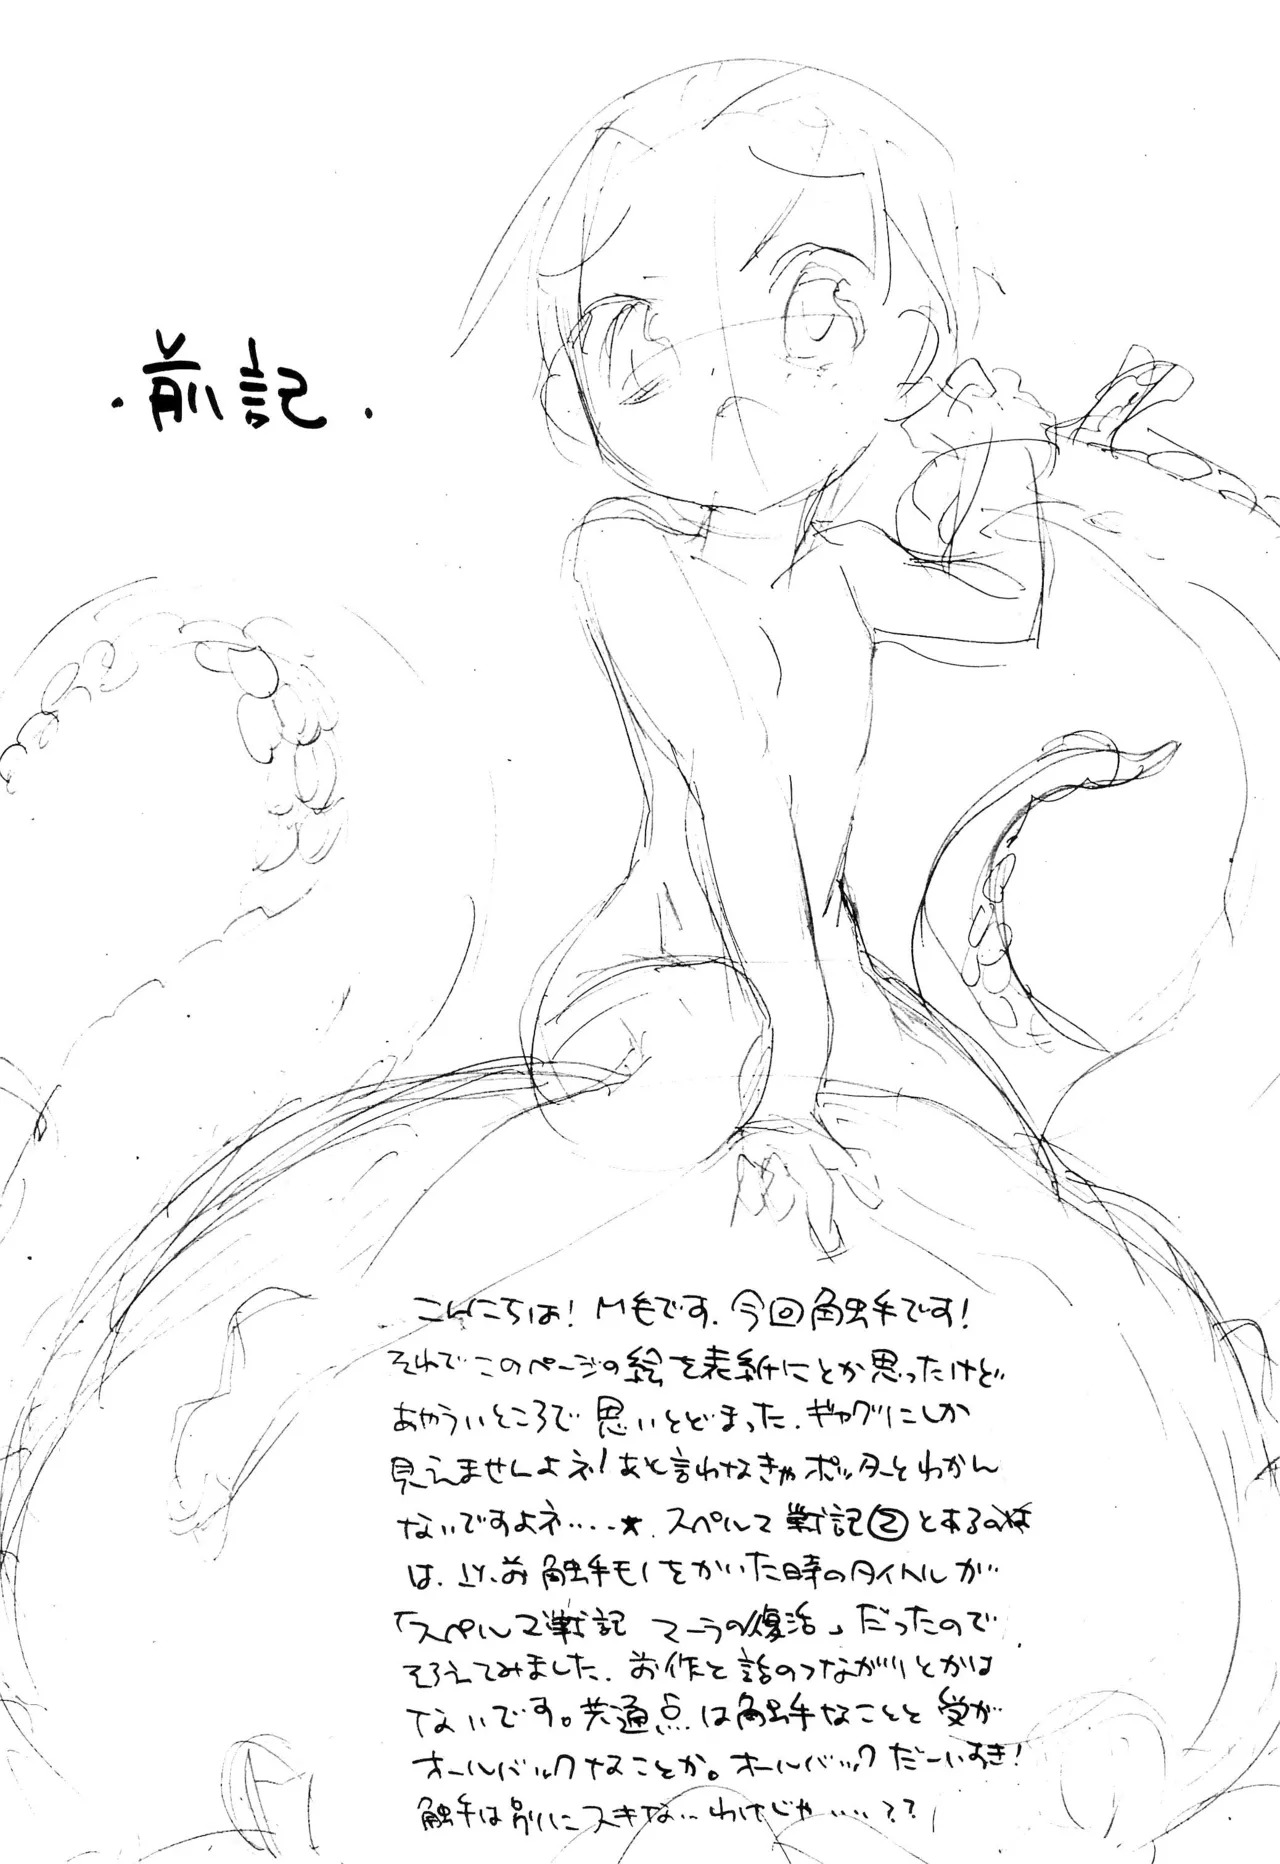 ・前記・
こんにちは!M毛です.今回触手です!
それでこのページの絵を表紙にとか思ったけど
あやういところで思いとどまった.ギャグにしか
見えませんよネ!あと言わなきゃポッターとわかん
ないですよネ・・・・★.スペルマ戦記②とあるのは
は、以前触手モノをかいた時のタイトルが
「スペルマ戦記 マーラの復活」だったので
そろえてみました.前作と話のつながりとかは
ないです。共通点は触手なことと受が
オールバックなことか。オールバックだーいすき!
触手は別にスキな..わけじゃ.....??